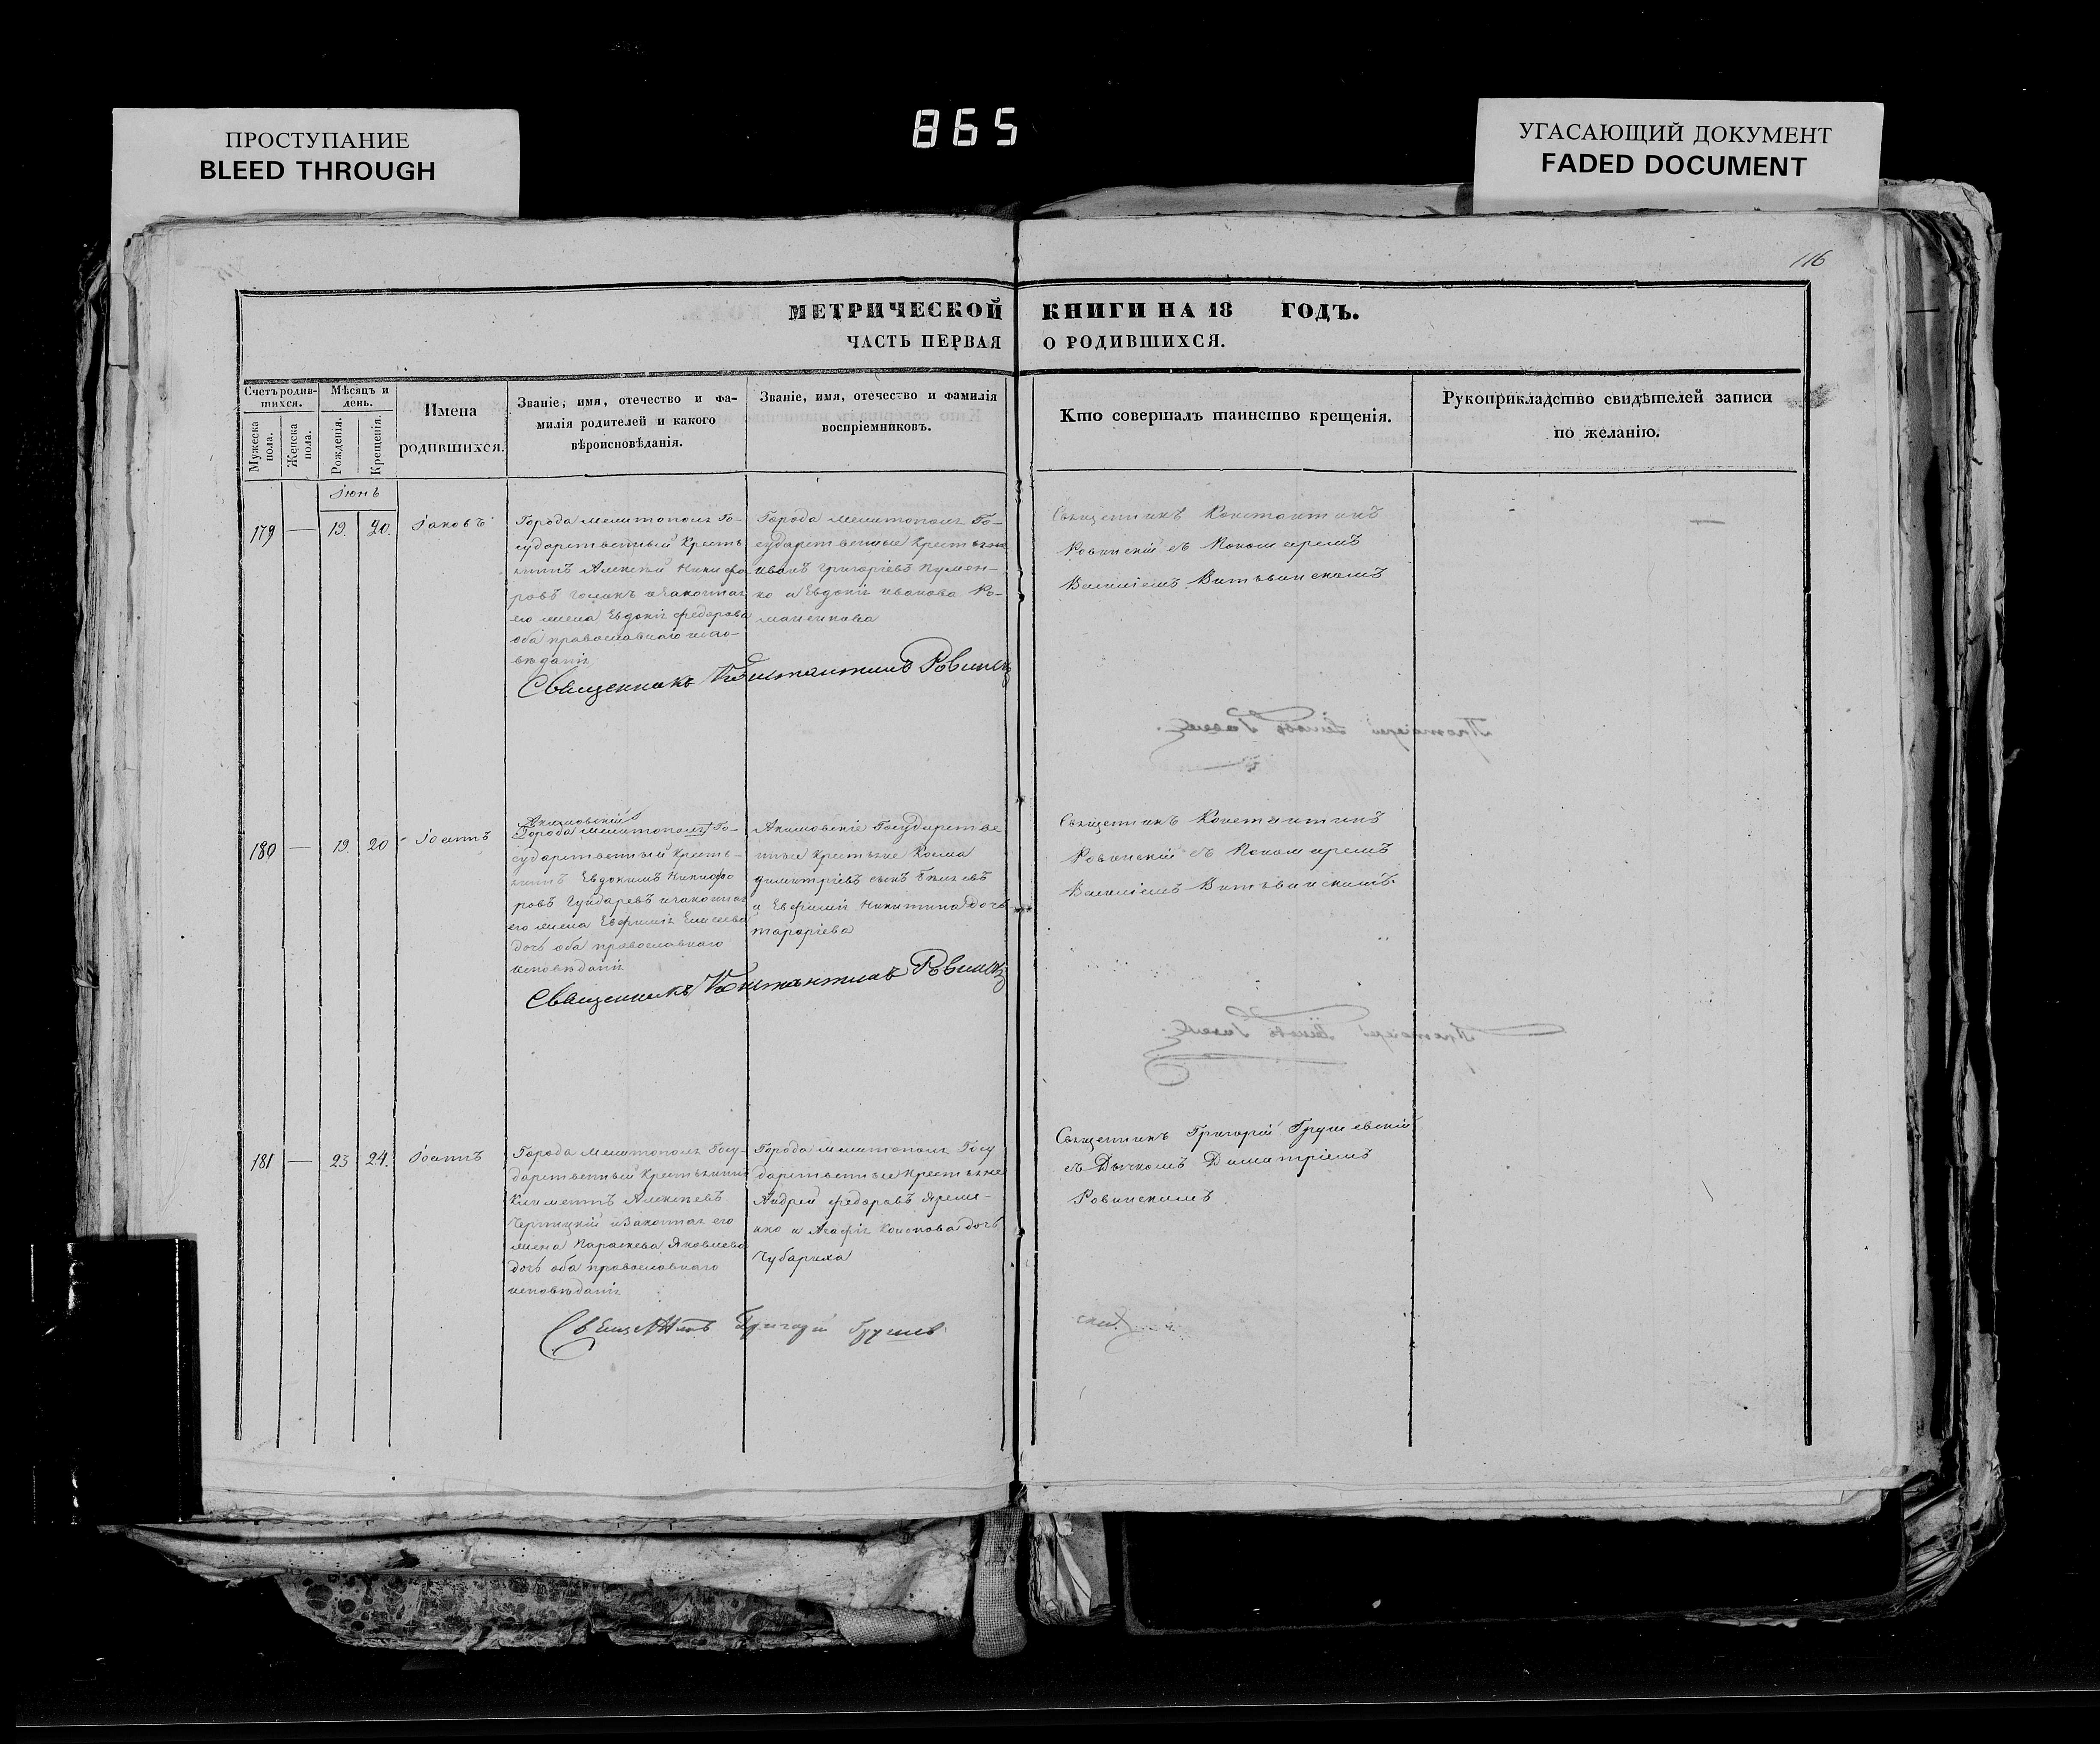 865
ПРОСТУПАНИЕ
BLEED THROUGH
УГАСАЮЩИЙ ДОКУМЕНТ
FADED DOCUMENT
116
МЕТРИЧЕСКОЙ КНИГИ НА 18 ГОДЪ.
ЧАСТЬ ПЕРВАЯ О РОДИВШИХСЯ.
Счетъ родив-
шихся.
Мужеска пола.
Женска пола.
Мѣсяцъ и
день.
Рожденія.
Крещенія.
Имена
родившихся.
Званіе, имя, отечество и фа-
милія родителей и какого
вѣроисповѣданія.
Званіе, имя, отечество и фамилія
воспріемниковъ.
Кто совершалъ таинство крещенія.
Рукоприкладство свидѣтелей записи
по желанію.
Іюнь
179 — 19. 20. Іаковъ
Города Мелитополя Го-
сударственный Кресть
янинъ Алексѣй Никифо
ровъ и законная
его жена Евдокія Федорова
оба православнаго испо-
вѣданія
Города Мелитополя Го-
сударственные Крестьяне
Иванъ Григоріевъ
и Евдокія Иванова
Священникъ Константинъ
Ровинскій съ Пономаремъ
Василіемъ
Священникъ Константинъ Ровинскій
180 — 19. 20 Іоаннъ
Акимовскій
Города Мелитополя Го-
сударственный Кресть-
янинъ Евдокимъ Никифо
ровъ и законная
его жена Евфимія Елисеева
дочь оба православнаго
исповѣданія
Акимовскіе Государстве
нные Крестьяне Косма
Димитріевъ сынъ
и Евфимія Никитина дочь
Священникъ Константинъ
Ровинскій съ Пономаремъ
Василіемъ
Священникъ Константинъ Ровинскій
181 — 23 24. Іоаннъ
Города Мелитополя Госу-
дарственный Крестьянинъ
Климентъ Алексѣевъ
и законная его
жена Параскева Яковлева
дочь оба православнаго
исповѣданія
Города Мелитополя Госу
дарственные Крестьяне
Андрей Федоровъ Яреме-
нко и Агафія дочь
Чубариха
Священникъ Григорій Грушевскій
съ Дьячкомъ Димитріемъ
Ровинскимъ
Священникъ Григорій Грушев
скій